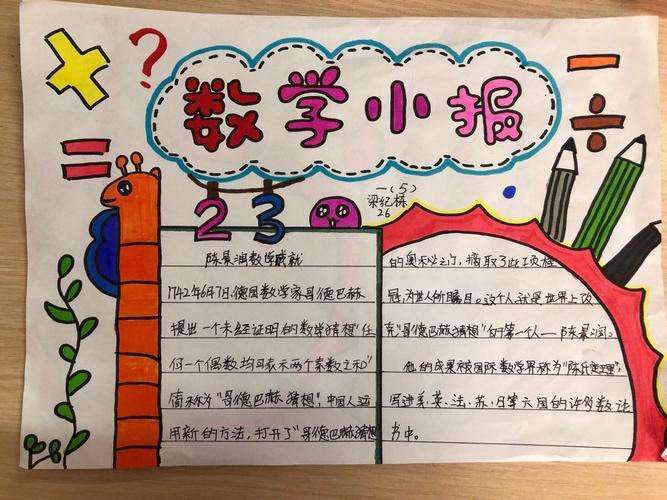 数学小报
一(5)
梁纪栋
26
2 3
陈景润数学成就
1742年6月7日德国数学家哥德巴赫
提出一个未经证明的数学猜想"任
何一个偶数均可表示两个素数之和"
简称为"哥德巴赫猜想",中国人运
用新的方法,打开了"哥德巴赫猜想
的奥秘之门,摘取了此项桂
冠,为世人所瞩目。这个人就是世界上攻
克"哥德巴赫猜想"的第一人——陈景润。
他的成果被国际数学界称为"陈氏定理",
写进美、英、法、苏、日等六国的许多数论
书中。